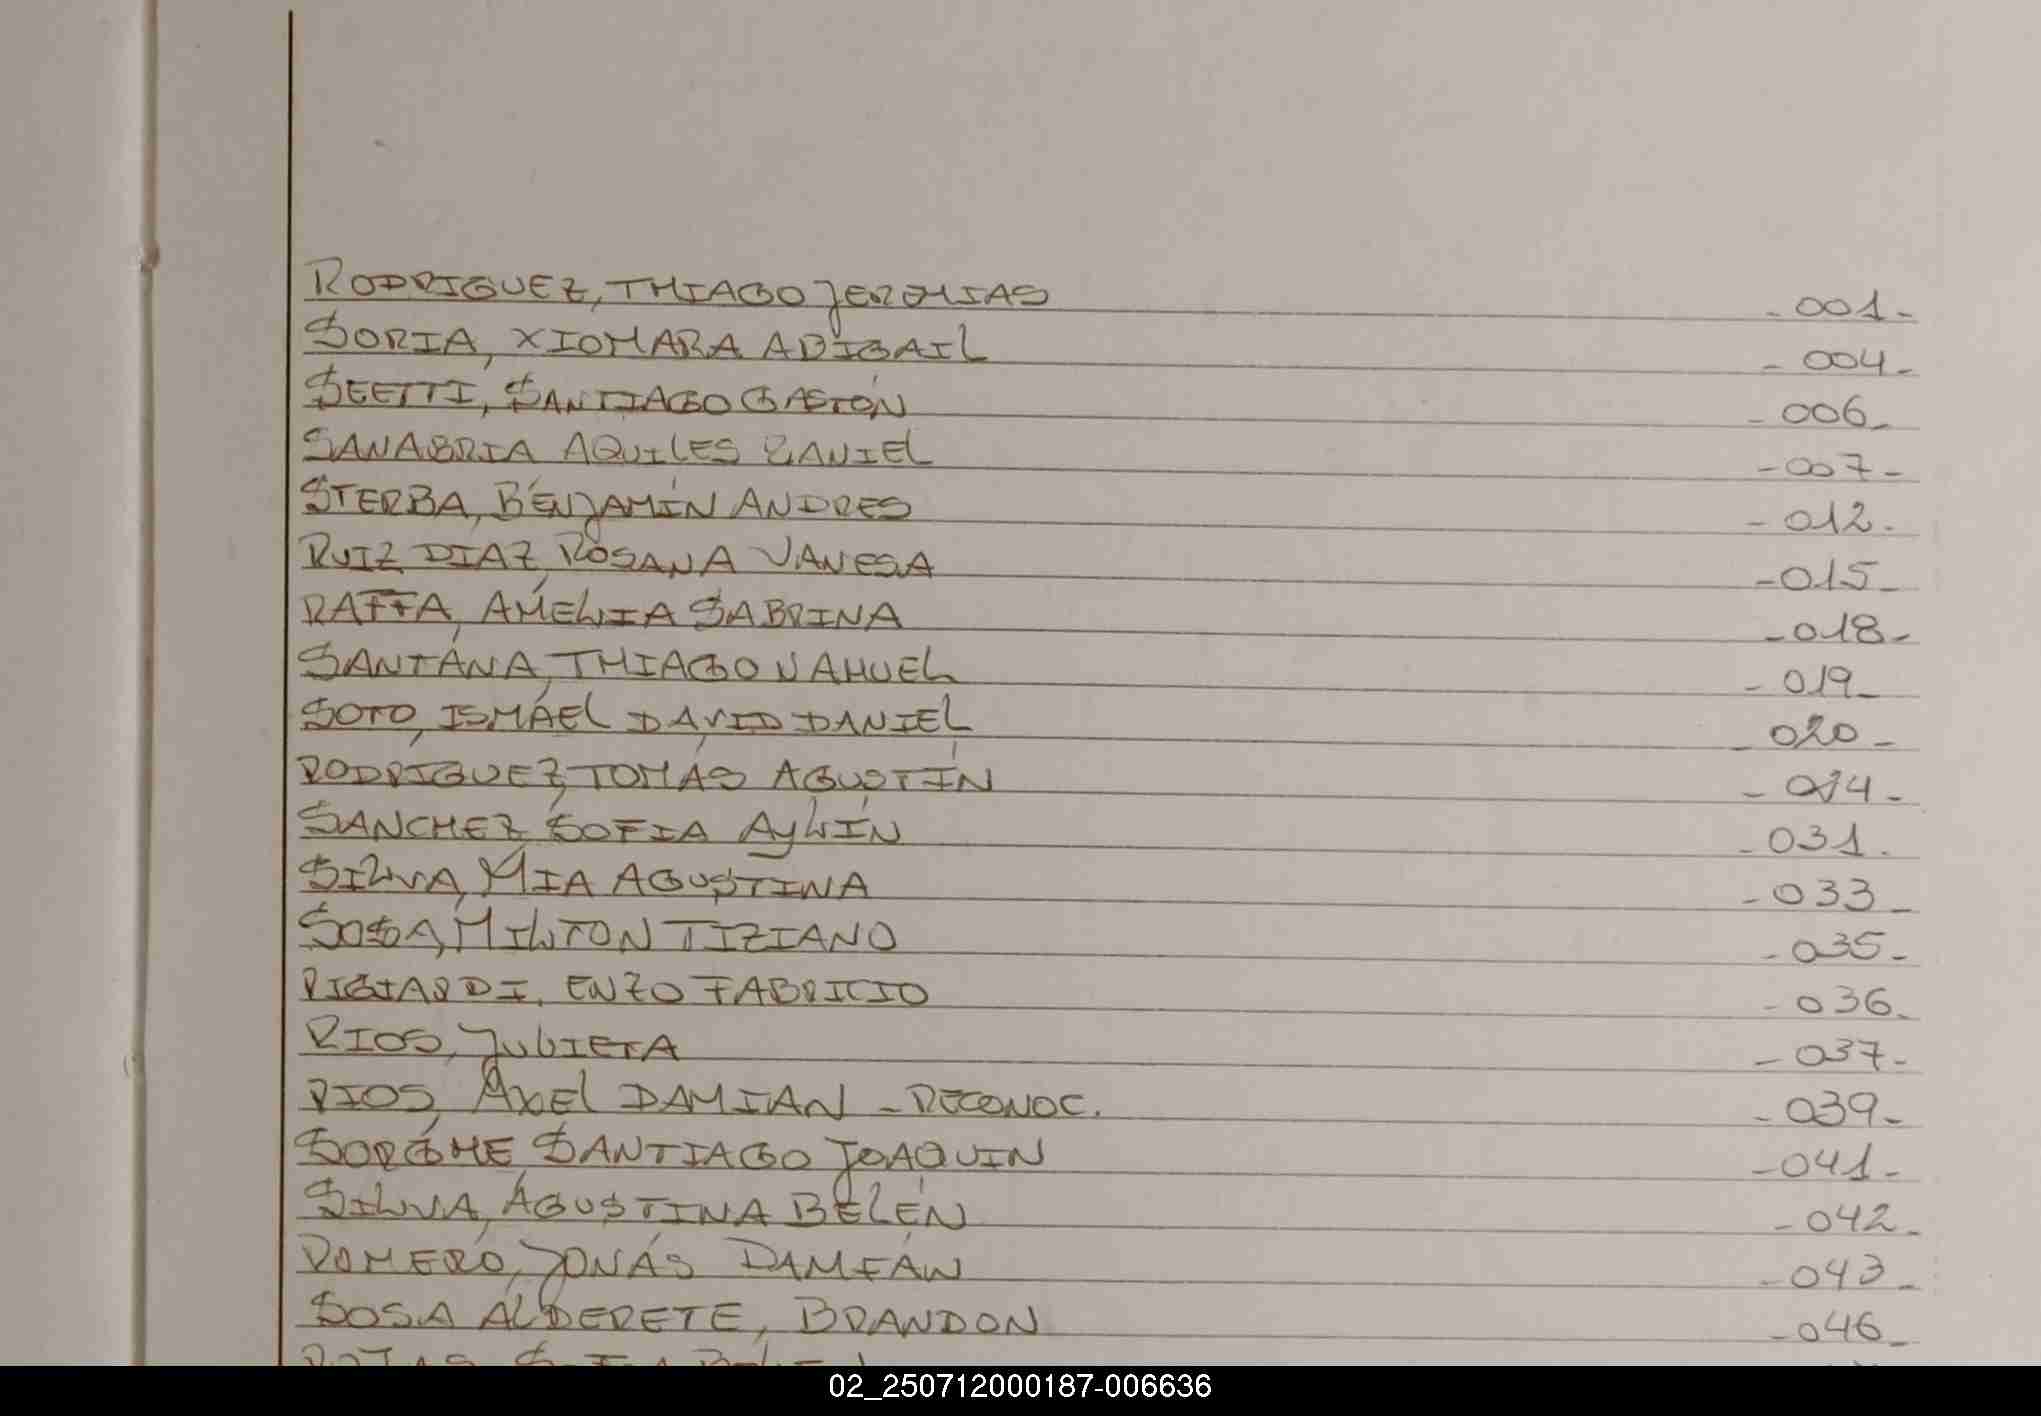 RODRIGUEZ, THIAGO JEREMIAS -001-
SORIA, XIOMARA ABIGAIL -004-
SEETTI, SANTIAGO GASTÓN -006-
SANABRIA AQUILES DANIEL -007-
STERBA, BENJAMÍN ANDRES -012-
RUIZ DIAZ, ROSANA VANESA -015-
RAFFA, AMELIA SABRINA -018-
SANTANA, THIAGO NAHUEL -019-
SOTO, ISMAEL DAVID DANIEL -020-
RODRIGUEZ, TOMÁS AGUSTÍN
SANCHEZ, SOFIA AYLÍN -031-
SILVA, MIA AGUSTINA -033-
SOSA, MILTON TIZIANO -035-
RIGIARDI, ENZO FABRICIO -036-
RIOS, JULIETA -037-
RIOS, AXEL DAMIAN -RECONOC. -039-
SORGHE, SANTIAGO JOAQUIN -041-
SILVA, AGUSTINA BELÉN -042-
ROMERO, JONÁS DAMIÁN -043-
SOSA ALDERETE, BRANDON -046-
02_250712000187-006636